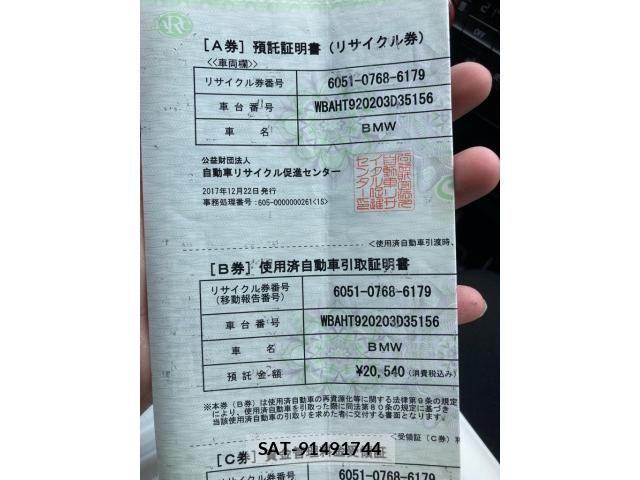 [A券] 預託証明書 (リサイクル券)
<<車両欄>>
リサイクル券番号 6051-0768-6179
車台番号 WBAHT920203D35156
車名 BMW
公益財団法人
自動車リサイクル促進センター
2017年12月22日発行
事務処理番号:605-0000000261<1S>
<使用済自動車引渡時、
[B券] 使用済自動車引取証明書
リサイクル券番号 6051-0768-6179
(移動報告番号)
車台番号 WBAHT920203D35156
車名 BMW
預託金額 ¥20,540 (消費税込み)
※本券(B券)は使用済自動車の再資源化等に関する法律第9条の規定
により、使用済自動車を引取った際に同法第80条の規定に基づき
当該使用済自動車の引取りを求めた者に交付する書面となります。
<受領証(C券)
SAT-91491744
[C券]
リサイクル券番号 6051-0768-6179